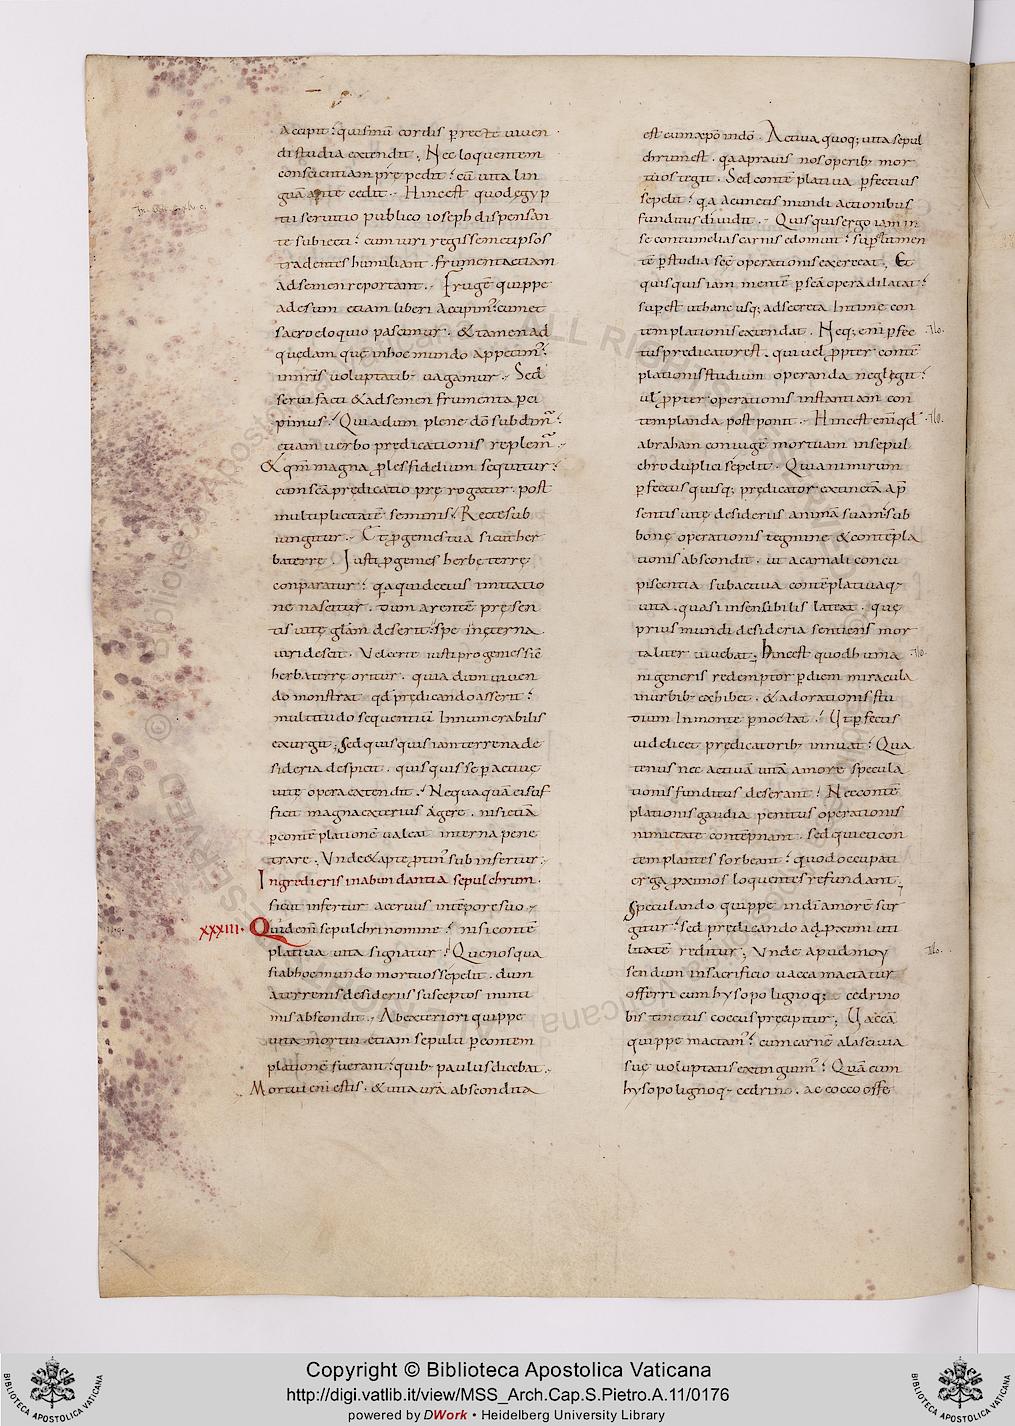 Accipit: quis nū cordis p recte viven
di studia extendit; Nec loquentem
conscientiam prępedit: cū vita lin
guā apte cedit. Hinc est quod ęgyp
tii servitio publico ioseph dispensan
te subiecti: cum iuri regis semetipsos
tradentes humiliant. frumenta etiam
ad semen reportant. Frugē quippe
ad esum etiam liberi accipim: cum et
sacro eloquio pascimur. & tamen ad
quędam quę in hoc mundo appetim:
in iuris voluptatib vagamur. Sed
servi facti & ad semen frumenta perci
pimus. Quia dum plene dō subdim:
etiam verbo prędicationis replem.
& qm magna ples fidelium sequitur:
cum scā prędicatio pręrogatur. post
multiplicitatē seminis: Recte sub
iungitur. Et pgenies tua sicut her
ba terrę. Iusti pgenies herbę terrę
conparatur: qa qui de eius imitatio
ne nascitur. dum arentē pręsen
tis vitę glām deserit: spe in ęterna
viridescit. Vel certe iusti progenies sic
herba terrę oritur. quia dum viven
do monstrat qd prędicando asserit:
multitudo sequentiū Innumerabilis
exurgit; Sed quisquis iam terrena de
sideria despicit. quisquis se p activę
vitę opera extendit: Nequaquā ei suf
ficit magna exterius agere. nisi etiā
p contēplationē valeat interna pene
trare; Unde & apte ptin subinfertur;
Ingredieris in abundantia sepulchrum.
sicut infertur acervus in tēpore suo.
XXXIII. Quid enī sepulchri nomine: nisi contē
plativa vita signatur: Quę nos qua
si ab hoc mundo mortuos sepelit. dum
a terrenis desideriis susceptos inti
mis abscondit. Ab exteriori quippe
vita mortui. etiam sepulti p contem
plationē fuerant: quib paulus dicebat.
Mortui enī estis. & vita vrā abscondita
est cum xpō in dō. Activa quoq; vita sepul
chrum est. qa a pravis nos operib mor
tuos tegit. Sed contēplativa pfectius
sepelit: qa a cunctis mundi actionibus
funditus dividit. Quisquis ergo iam in
se contumelias carnis edomuit: supest ut men
tē p studia scē operationis exerceat. Et
quisquis iam mentē p scā opera dilatat:
supest ut hanc usq; ad secreta Intimę con
templationis extendat. Neq; enī pfec
tus predicator est. qui vel ppter contē
plationis studium operanda neglegit:
vl ppter operationis instantiam con
templanda postponit. Hinc est enī qd
abraham coniugē mortuam in sepul
chro duplici sepelit. Quia nimirum
pfectus quisq; prędicator extinctā a p
sentis vitę desideriis animā suam: sub
bonę operationis tegmine & contēpla
tionis abscondit. ut a carnali concu
piscentia sub activa contēplativaq
vita. quasi insensibilis lateat. quę
prius mundi desideria sentiens mor
taliter vivebat; hinc est quod huma
ni generis redemptor p diem miracula
in urbib exhibet. & ad orationis stu
dium In monte pnoctat: Ut pfectis
videlicet prędicatorib innuat: Qua
tenus nec activā vitā amore specula
tionis funditus deserant: Nec contē
plationis gaudia penitus operationis
nimietate contēpnant. sed quieti con
templantes sorbeant: quod occupati
erga pximos loquentes refundant;
Speculando quippe in dī amorē sur
gitur: sed predicando ad pximi uti
litatē reditur; Unde apud moy
sen dum in sacrificio vacca mactatur
offerri cum hysopo lignoq; cedrino
bis tinctus coccus pręcipitur; Vaccā
quippe mactam: cum carnē a lascivia
suę voluptatis extinguim: Quā cum
hysopo lignoq cedrino. ac cocco offe
Copyright © Biblioteca Apostolica Vaticana
http://digi.vatlib.it/view/MSS_Arch.Cap.S.Pietro.A.11/0176
powered by DWork • Heidelberg University Library